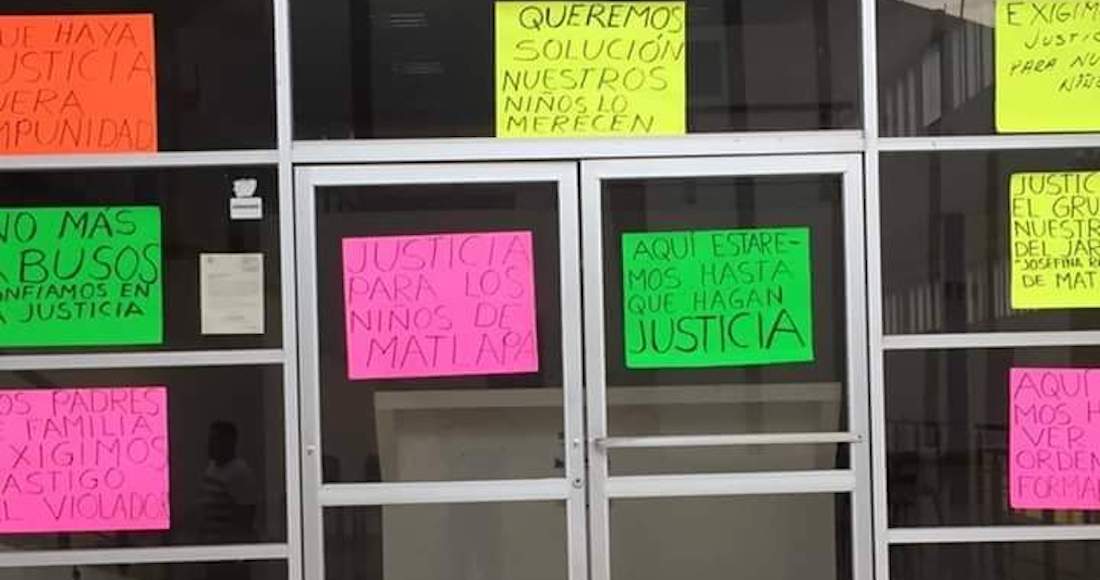 UE HAYA
USTICIA
UERA
MPUNIDAD
QUEREMOS
SOLUCIÓN
NUESTROS
NIÑOS LO
MERECEN
EXIGIM
JUSTIC
PARA NU
NIÑE
NO MÁS
ABUSOS
ONFIAMOS EN
A JUSTICIA
JUSTICIA
PARA LOS
NIÑOS DE
MATLAPA
AQUÍ ESTARE-
MOS HASTA
QUE HAGAN
JUSTICIA
JUSTIC
EL GRU
NUESTR
DEL JAR
"JOSEFINA R
DE MAT
OS PADRES
E FAMILIA
EXIGIMOS
ASTIGO
L VIOLADOR
AQUÍ
MOS H
VER
ORDEN
FORMA